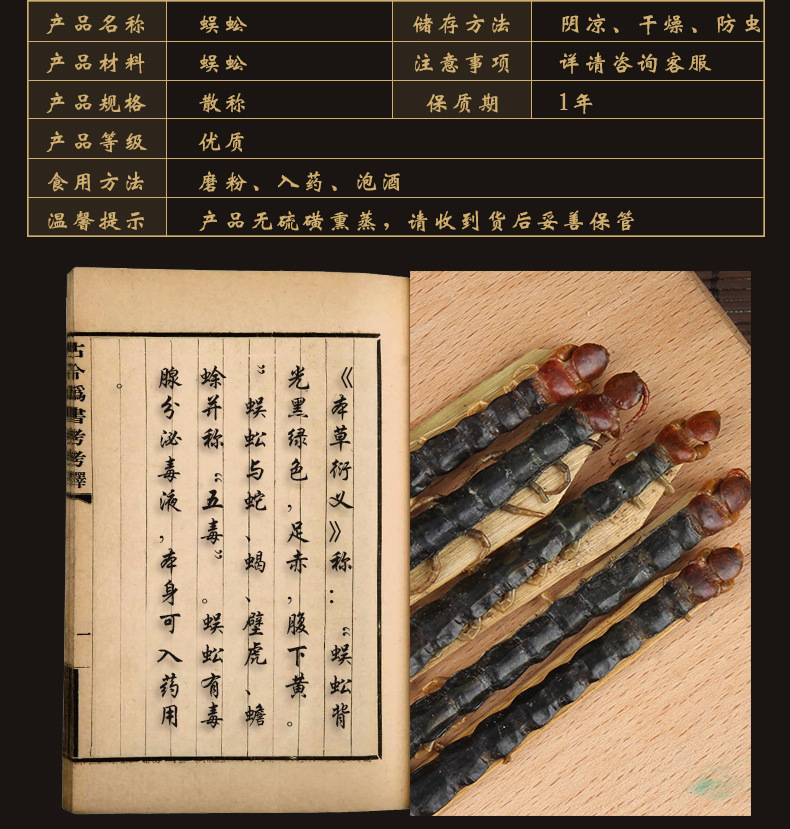 产品名称 蜈蚣 储存方法 阴凉、干燥、防虫
产品材料 蜈蚣 注意事项 详请咨询客服
产品规格 散称 保质期 1年
产品等级 优质
食用方法 磨粉、入药、泡酒
温馨提示 产品无硫磺熏蒸，请收到货后妥善保管
《本草衍义》称：“蜈蚣背
光黑绿色，足赤，腹下黄。
”蜈蚣与蛇、蝎、壁虎、蟾
蜍并称“五毒”。蜈蚣有毒
腺分泌毒液，本身可入药用
。
古今偽書考考釋
一